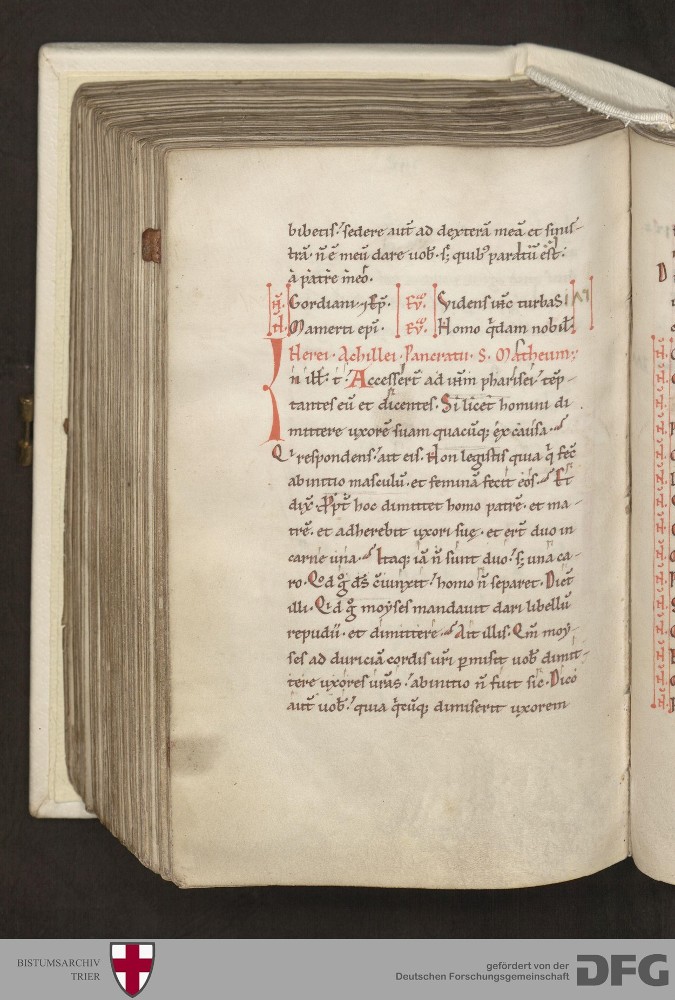 bibetis. sedere aut̄ ad dexterā meā et sinis-
trā. n̄ ē meū dare uob̄. s; quib; paratū est.
à patre meo.
Gordiani ⁊ Ep̄. Videns ihc̄ turbas.
Mamerti epi. Homo q̄dam nobil̄.
Nerei. Achillei. Pancratii. S. Matheum.
In ill̄. t. Accessert̄ ad ihm̄ pharisei. tēp-
tantes eū et dicentes. Si licet homini di
mittere uxorē suam quacūq; ex causa.
Qi respondens. ait eis. Non legistis quia q̄ fec̄
abinitio masculū. et feminā fecit eos. Et
dix̄. ꝓpt̄ hoc dimittet homo patrē. et ma-
trē. et adherebit uxori suę. et er̄t duo in
carne una. Itaq; iā n̄ sunt duo. s; una ca-
ro. Qd ḡ ds̄ c̄iunxit. homo n̄ separet. Dic̄t
illi. Qd ḡ moyses mandauit dari libellū
repudii. et dimittere. Ait illis. Qm̄ moy-
ses ad duriciā cordis ur̄i ꝑmisit uob̄ dimit-
tere uxores ur̄as. abinitio n̄ fuit sic. Dico
aut̄ uob̄. quia q̄cūq; dimiserit uxorem
BISTUMSARCHIV
TRIER
gefördert von der
Deutschen Forschungsgemeinschaft
DFG